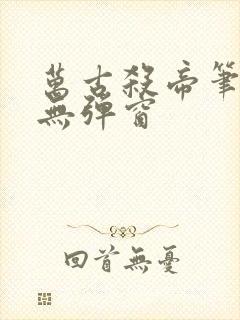 萬古殺帝筆
無彈窗
回首無憂